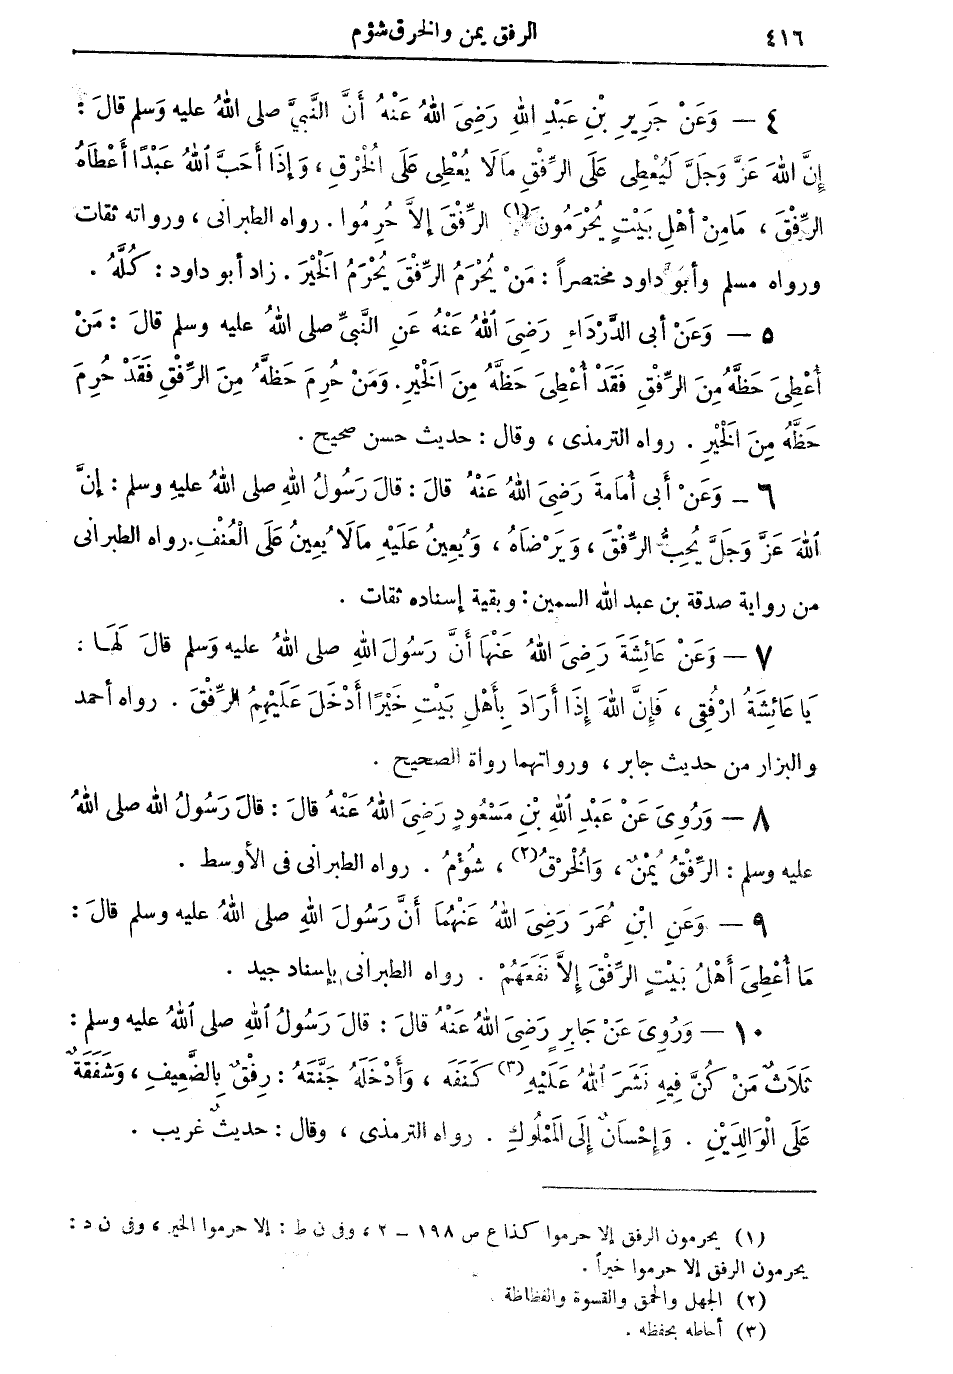 ٤١٦ الرفق يمن والخرق شؤم
٤ — وَعَنْ جَرِيرِ بْنِ عَبْدِ اللهِ رَضِيَ اللهُ عَنْهُ أَنَّ النَّبِيَّ صلى اللهُ عليه وَسلم قالَ :
إِنَّ اللهَ عَزَّ وَجَلَّ لَيُعْطِى عَلَى الرِّفْقِ مالَا يُعْطِى عَلَى الْخُرْقِ ، وَإِذَا أَحَبَّ اللهُ عَبْدًا أَعْطَاهُ
الرِّفْقَ ، مَامِنْ أَهْلِ بَيْتٍ يُحْرَمُونَ(١) الرِّفْقَ إِلاَّ حُرِمُوا . رواه الطبرانى ، ورواته ثقات
ورواه مسلم وأبو داود مختصراً : مَنْ يُحْرَمُ الرِّفْقَ يُحْرَمُ الْخَيْرَ . زاد أبو داود : كُلَّهُ .
٥ — وَعَنْ أبى الدَّرْدَاءِ رَضِىَ اللهُ عَنْهُ عَنِ النَّبِىِّ صلى اللهُ عليه وسلم قالَ : مَنْ
أُعْطِىَ حَظَّهُ مِنَ الرِّفْقِ فَقَدْ أُعْطِىَ حَظَّهُ مِنَ الْخَيْرِ . وَمَنْ حُرِمَ حَظَّهُ مِنَ الرِّفْقِ فَقَدْ حُرِمَ
حَظَّهُ مِنَ الْخَيْرِ . رواه الترمذى ، وقال : حديث حسن صحيح .
٦ — وَعَنْ أَبى أُمَامةَ رَضِىَ اللهُ عَنْهُ قالَ : قالَ رَسُولُ اللهِ صلى اللهُ عليهِ وسلم : إِنَّ
اللهَ عَزَّ وَجَلَّ يُحِبُّ الرِّفْقَ ، وَيَرْضَاهُ ، وَيُعِينُ عَلَيْهِ مالَا يُعِينُ عَلَى الْعُنْفِ . رواه الطبرانى
من رواية صدقة بن عبد الله السمين : وبقية إسناده ثقات .
٧ — وَعَنْ عَائِشَةَ رَضِىَ اللهُ عَنْهَا أَنَّ رَسُولَ اللهِ صلى اللهُ عليه وَسلم قالَ لَهَا :
يَا عَائِشَةُ ارْفُقِى ، فَإِنَّ اللهَ إِذَا أَرَادَ بِأَهْلِ بَيْتٍ خَيْرًا أَدْخَلَ عَلَيْهِمُ الرِّفْقَ . رواه أحمد
والبزار من حديث جابر ، ورواتهما رواة الصحيح .
٨ — وَرُوِىَ عَنْ عَبْدِ اللهِ بْنِ مَسْعُودٍ رَضِىَ اللهُ عَنْهُ قالَ : قالَ رَسُولُ الله صلى اللهُ
عليه وسلم : الرِّفْقُ يُمْنٌ ، وَالْخُرْقُ(٢) ، شُؤْمٌ . رواه الطبرانى فى الأوسط .
٩ — وَعَنِ ابْنِ عُمَرَ رَضِىَ اللهُ عَنْهُمَا أَنَّ رَسُولَ اللهِ صلى اللهُ عليه وسلم قالَ :
مَا أُعْطِىَ أَهْلُ بَيْتٍ الرِّفْقَ إِلاَّ نَفَعَهُمْ . رواه الطبرانى بإسناد جيد .
١٠ — وَرُوِىَ عَنْ جَابِرٍ رَضِىَ اللهُ عَنْهُ قالَ : قالَ رَسُولُ اللهِ صلى اللهُ عليه وسلم :
ثَلَاثٌ مَنْ كُنَّ فِيهِ نَشَرَ اللهُ عَلَيْهِ(٣) كَنَفَه ، وَأَدْخَلَهُ جَنَّتَهُ : رِفْقٌ بِالضَّعِيفِ ، وَشَفَقَةٌ
عَلَى الْوَالِدَيْنِ . وَإِحْسَانٌ إِلَى الْمَمْلُوكِ . رواه الترمذى ، وقال : حديثٌ غريب .
(١) يحرمون الرفق إلا حرموا كذا ع ص ١٩٨ — ٢ ، وفى ن ط : إلا حرموا الخير ، وفى ن د :
يحرمون الرفق إلا حرموا خيراً .
(٢) الجهل والحمق والقسوة والفظاظة .
(٣) أحاطه بحفظه .